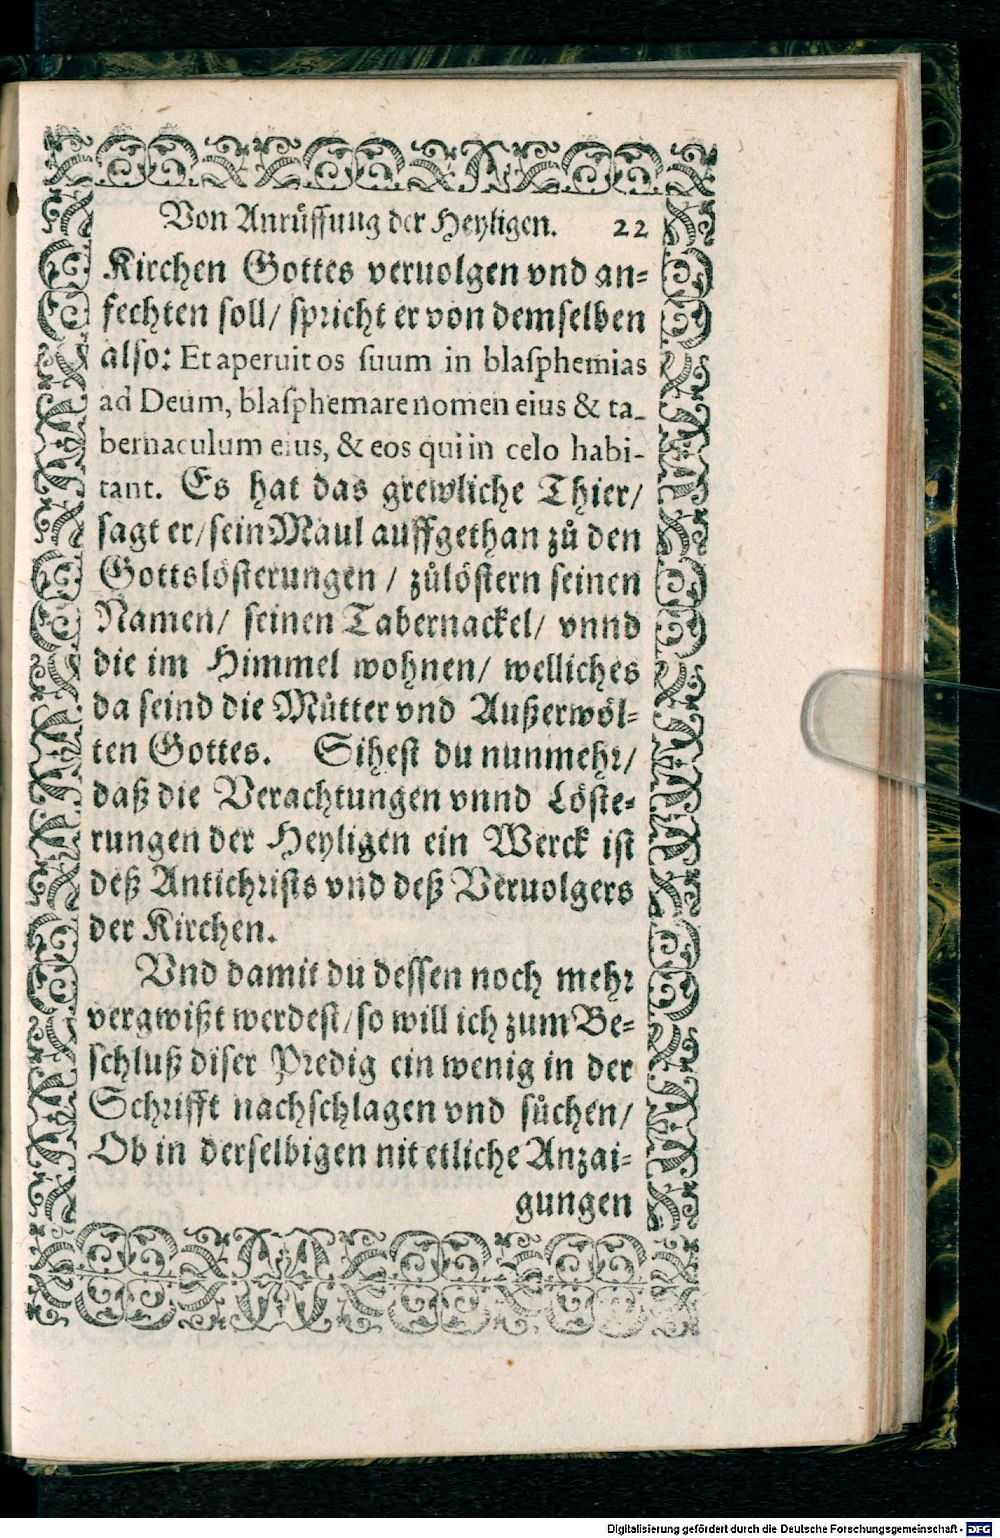 Von Anrůffung der Heyligen. 22
Kirchen Gottes veruolgen vnd an=
fechten soll/ spricht er von demselben
also: Et aperuit os suum in blasphemias
ad Deum, blasphemare nomen eius & ta-
bernaculum eius, & eos qui in celo habi-
tant. Es hat das grewliche Thier/
sagt er/ sein Maul auffgethan zů den
Gottslösterungen / zůlöstern seinen
Namen/ seinen Tabernackel/ vnnd
die im Himmel wohnen/ welliches
da seind die Mütter vnd Außerwöl=
ten Gottes. Sihest du nunmehr/
daß die Verachtungen vnnd Löste=
rungen der Heyligen ein Werck ist
deß Antichrists vnd deß Veruolgers
der Kirchen.
Vnd damit du dessen noch mehr
vergwißt werdest/ so will ich zum Be=
schluß diser Predig ein wenig in der
Schrifft nachschlagen vnd sůchen/
Ob in derselbigen nit etliche Anzai=
gungen
Digitalisierung gefördert durch die Deutsche Forschungsgemeinschaft - DFG